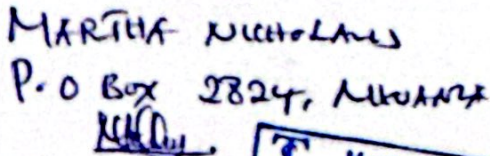 MARTHA NICHOLAUS
P.O BOX 2824, MWANZA